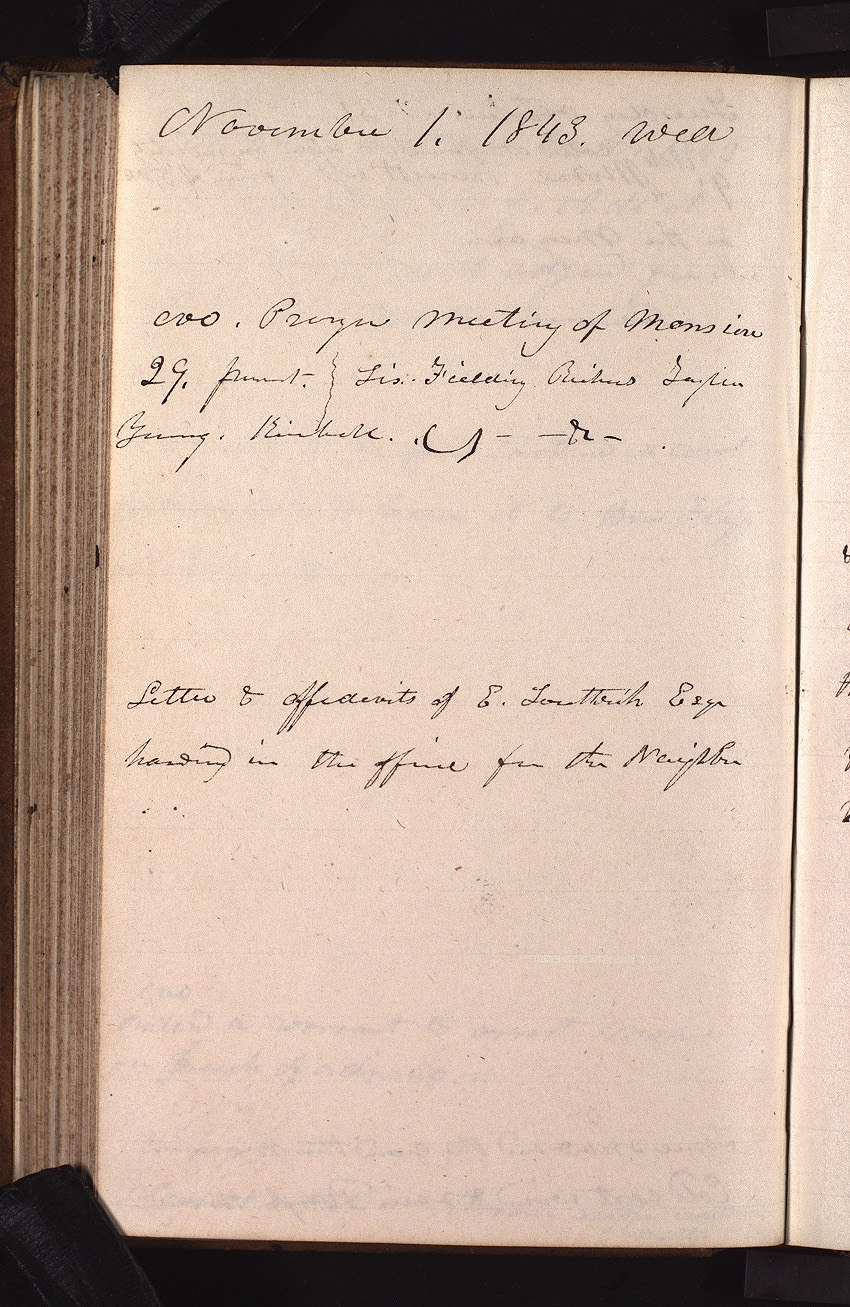 November 1. 1843. Wed
eve. Prayer meeting of Mansion
29. present. } Sis. Fielding Richards Taylor
Young. Kimball. — & —
Letter & affidavits of E. Southwick Esqr
handed in the office for the Neighbor